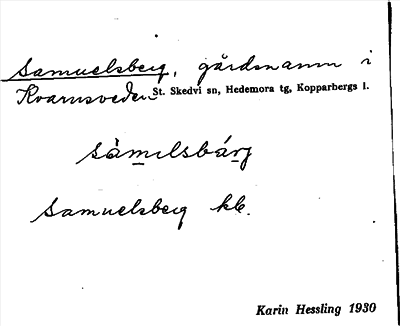 Samuelsberg, gårdsnamn i
Kvarnsveden St. Skedvi sn, Hedemora tg, Kopparbergs l.
sàmɩlsbárj
Samuelsberg kb.
Karin Hessling 1930